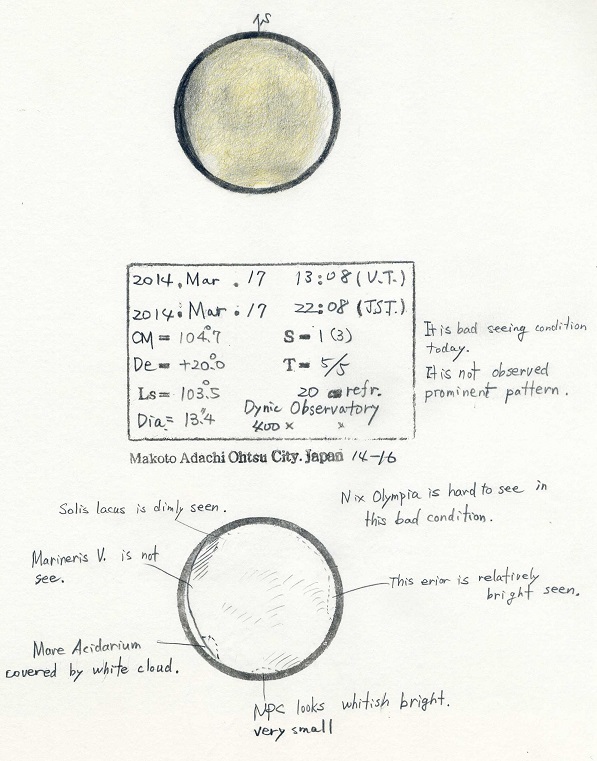 S
2014. Mar. 17 13:08 (U.T.)
2014. Mar. 17 22:08 (JST.)
CM = 104.°7 S = 1 (3)
De = +20.°0 T = 5/5
Ls = 103.°5 20 cm refr.
Dia = 13."4 Dynic Observatory
400 × "
Makoto Adachi Ohtsu City. Japan 14-16
It is bad seeing condition
today.
It is not observed
prominent pattern.
Nix Olympia is hard to see in
this bad condition.
Solis lacus is dimly seen.
Marineris V. is not
see.
Mare Acidarium
covered by white cloud.
This erior is relatively
bright seen.
NPC looks whitish bright.
very small